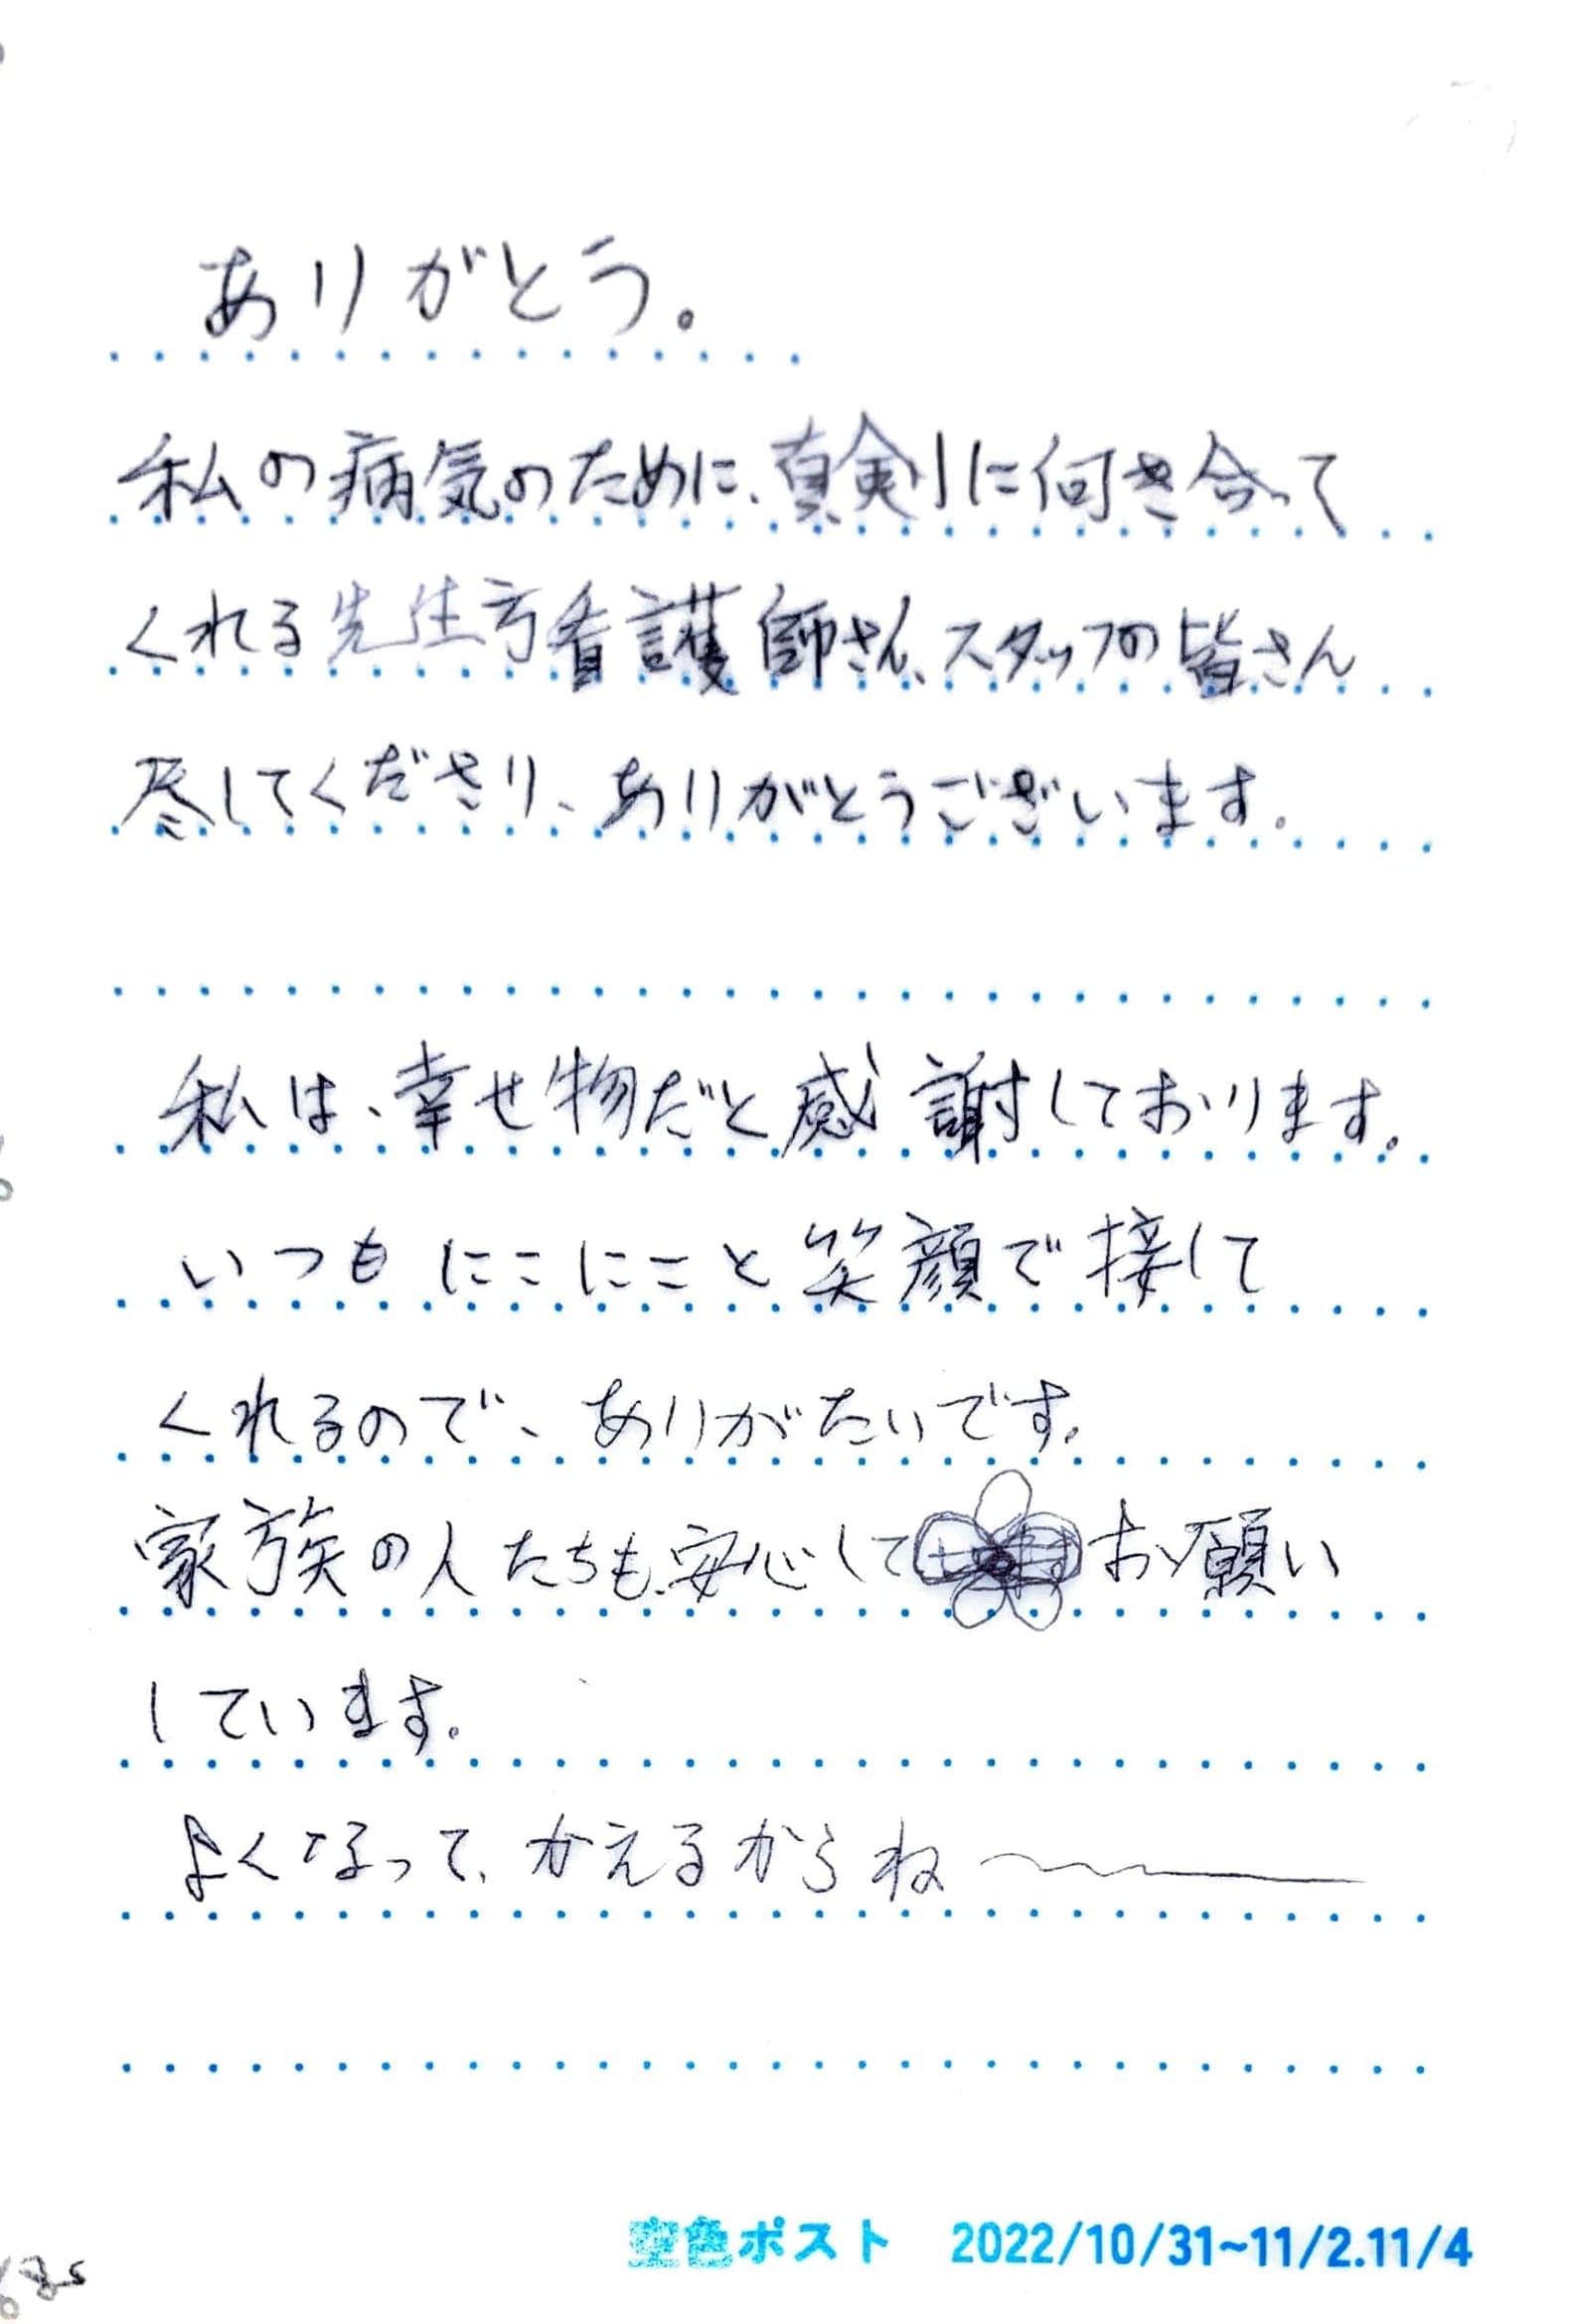 ありがとう。
私の病気のために、真剣に何き合って
くれる先生方看護師さん、スタッフの皆さん
尽してくださり、ありがとうございます。
私は、幸せ物だと感謝しております。
いつもにこにこと笑顔で接して
くれるので、ありがたいです。
家族の人たちも、安心してお願い
しています。
よくなって、かえるからね〜
空色ポスト 2022/10/31~11/2.11/4